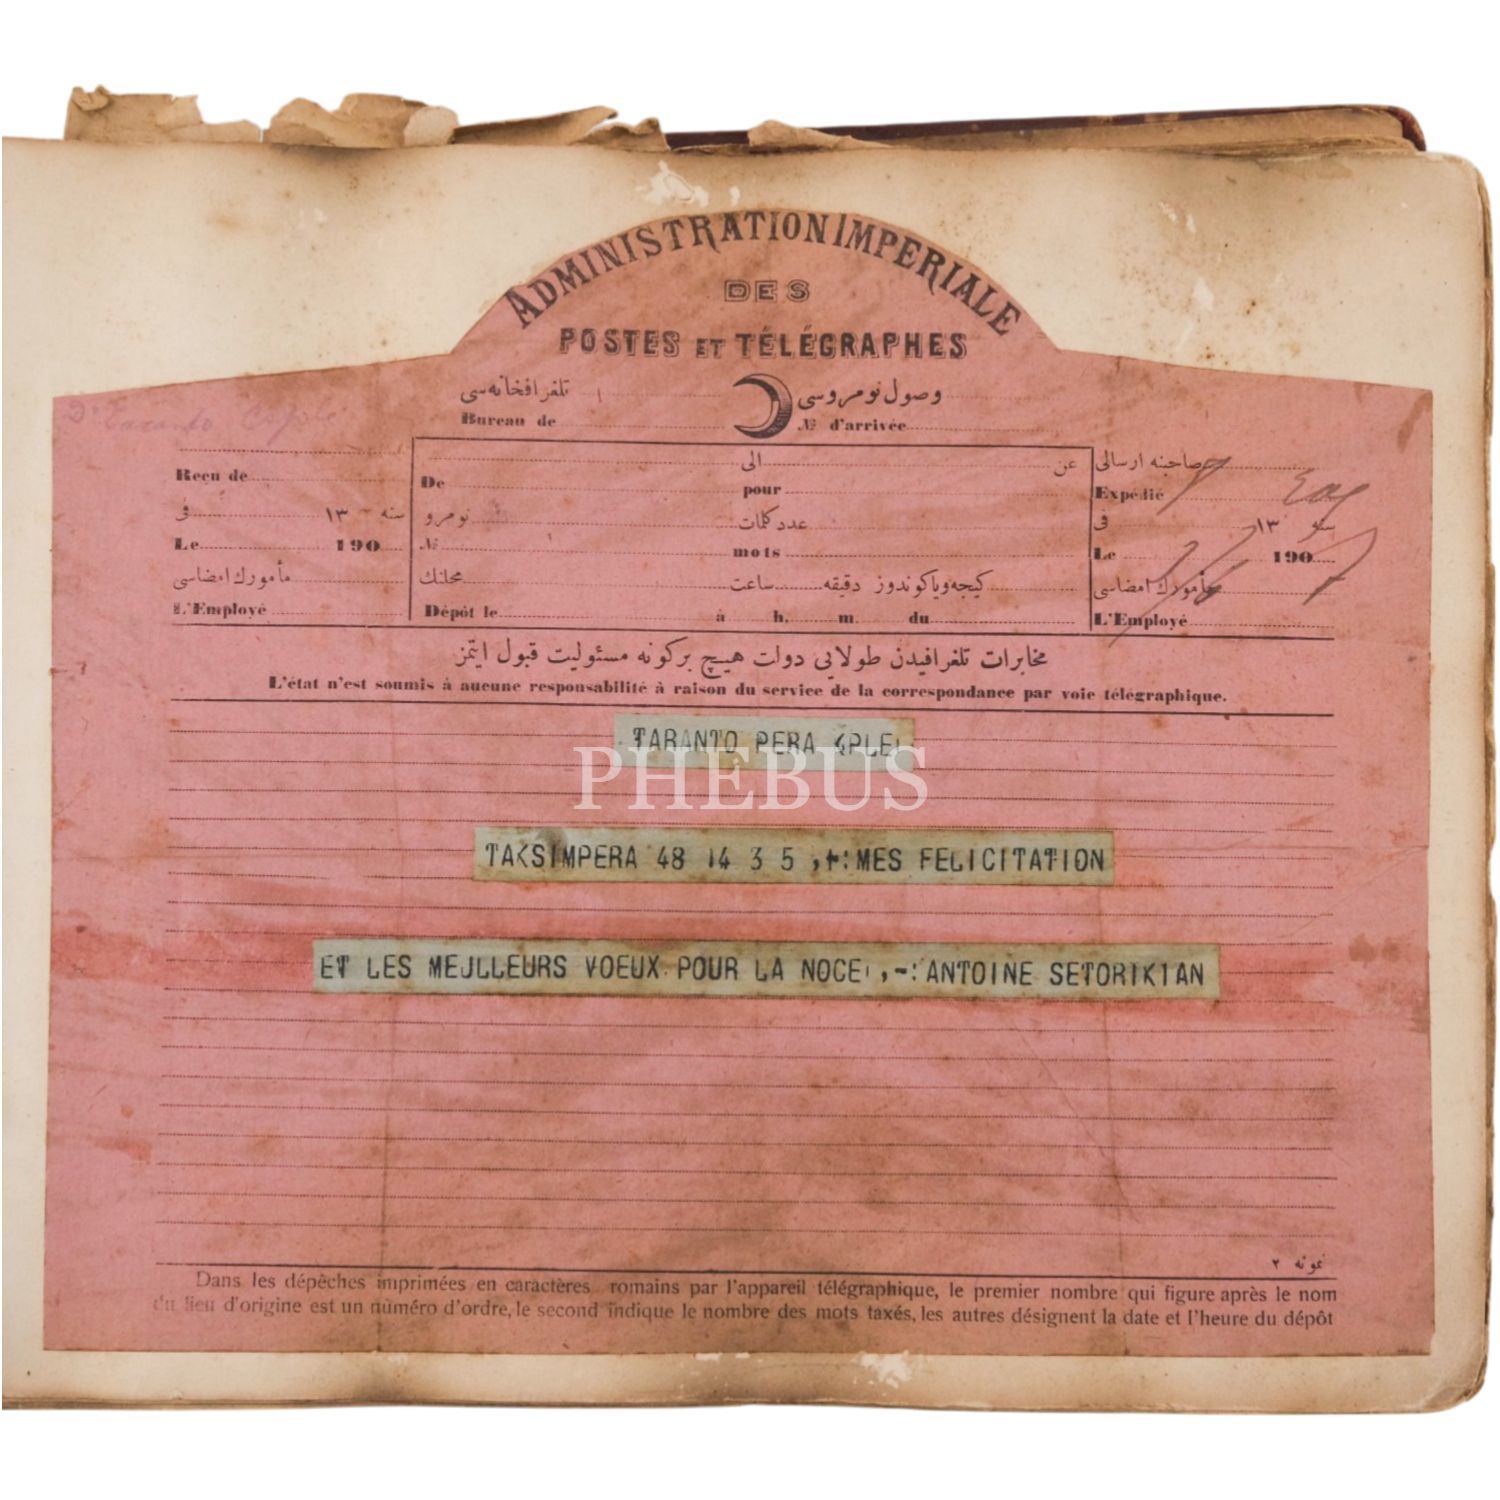 ADMINISTRATION IMPERIALE
DES
POSTES ET TÉLÉGRAPHES
تلغرافخانه‌سی
وصول نومروسی
Bureau de
№ d'arrivée
Reçu de
في
١٣
سنه
Le 190
مأمورك امضاسی
L'Employé
الی
عن
De
pour
نومرو
عدد كلمات
№
mots
محلنك
ساعت
دقیقه
كیجه ویا كوندوز
Dépôt le à h. m. du
صاحبنه ارسالی
Expédié
في
١٣
Le 190
مأمورك امضاسی
L'Employé
مخابرات تلغرافیدن طولایی دولت هیچ بركونه مسئولیت قبول ایتمز
L'état n'est soumis à aucune responsabilité à raison du service de la correspondance par voie télégraphique.
TARANTO PERA
PHEBUS
TAKSIMPERA 48 14 3 5 MES FELICITATION
ET LES MEJLLEURS VOEUX POUR LA NOCE ANTOINE SETORIKIAN
نمونه ٢
Dans les dépêches imprimées en caractères romains par l'appareil télégraphique, le premier nombre qui figure après le nom
du lieu d'origine est un numéro d'ordre, le second indique le nombre des mots taxés, les autres désignent la date et l'heure du dépôt